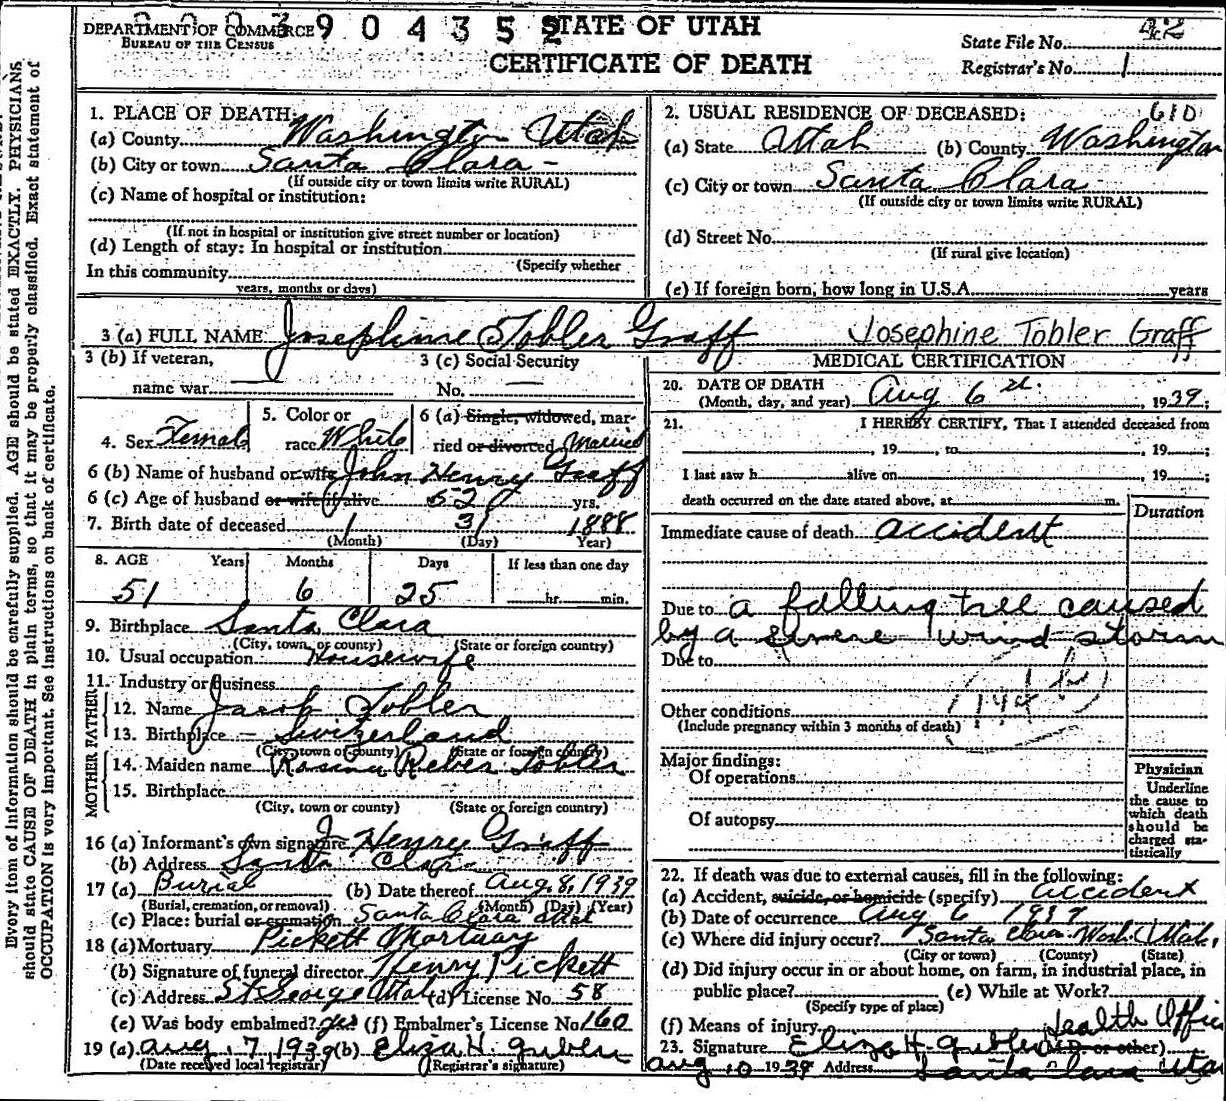 Every item of information should be carefully supplied. AGE should be stated EXACTLY. PHYSICIANS
should state CAUSE OF DEATH in plain terms, so that it may be properly classified. Exact statement of
OCCUPATION is very important. See instructions on back of certificate.
DEPARTMENT OF COMMERCE
BUREAU OF THE CENSUS
390435
STATE OF UTAH
CERTIFICATE OF DEATH
State File No. 42
Registrar's No. 1
1. PLACE OF DEATH:
(a) County Washington Utah
(b) City or town Santa Clara
(If outside city or town limits write RURAL)
(c) Name of hospital or institution:
(If not in hospital or institution give street number or location)
(d) Length of stay: In hospital or institution
(Specify whether
In this community
years, months or days)
2. USUAL RESIDENCE OF DECEASED: 610
(a) State Utah (b) County Washington
(c) City or town Santa Clara
(If outside city or town limits write RURAL)
(d) Street No.
(If rural give location)
(e) If foreign born, how long in U.S.A. years
3 (a) FULL NAME Josephine Tobler Graff Josephine Tobler Graff
3 (b) If veteran, name war —
3 (c) Social Security No. —
4. Sex Female
5. Color or race White
6 (a) Single, widowed, married or divorced Married
6 (b) Name of husband or wife John Henry Graff
6 (c) Age of husband or wife if alive 52 yrs.
7. Birth date of deceased 1 31 1888
(Month) (Day) Year)
8. AGE Years Months Days If less than one day
51 6 25 hr. min.
9. Birthplace Santa Clara
(City, town, or county) (State or foreign country)
10. Usual occupation Housewife
11. Industry or Business
FATHER
12. Name Jacob Tobler
13. Birthplace — Switzerland
(City, town or county) (State or foreign country)
MOTHER
14. Maiden name Rosina Reber Tobler
15. Birthplace
(City, town or county) (State or foreign country)
16 (a) Informant's own signature J. Henry Graff
(b) Address Santa Clara
17 (a) Burial (b) Date thereof Aug. 8, 1939
(Burial, cremation, or removal) (Month) (Day) (Year)
(c) Place: burial or cremation Santa Clara Utah
18 (a) Mortuary Pickett Mortuary
(b) Signature of funeral director Henry Pickett
(c) Address St George Utah (d) License No. 58
(e) Was body embalmed? yes (f) Embalmer's License No 160
19 (a) Aug. 7, 1939 (b) Eliza H. Gubler
(Date received local registrar) (Registrar's signature)
MEDICAL CERTIFICATION
20. DATE OF DEATH
(Month, day, and year) Aug 6 1939;
21. I HEREBY CERTIFY, That I attended deceased from
, 19 , to , 19 ;
I last saw h alive on , 19 ;
death occurred on the date stated above, at m.
Duration
Immediate cause of death accident
Due to a falling tree caused
by a severe wind storm
Due to
Other conditions
(Include pregnancy within 3 months of death)
Major findings:
Of operations
Of autopsy
Physician
Underline
the cause to
which death
should be
charged sta-
tistically
22. If death was due to external causes, fill in the following:
(a) Accident, suicide, or homicide (specify) accident
(b) Date of occurrence Aug 6 1939
(c) Where did injury occur? Santa Clara Wash. Utah,
(City or town) (County) (State)
(d) Did injury occur in or about home, on farm, in industrial place, in
public place? (e) While at Work?
(Specify type of place)
(f) Means of injury
Health Offic
23. Signature Eliza H. Gubler (M.D. or other)
Aug 10 1939 Address Santa Clara Utah